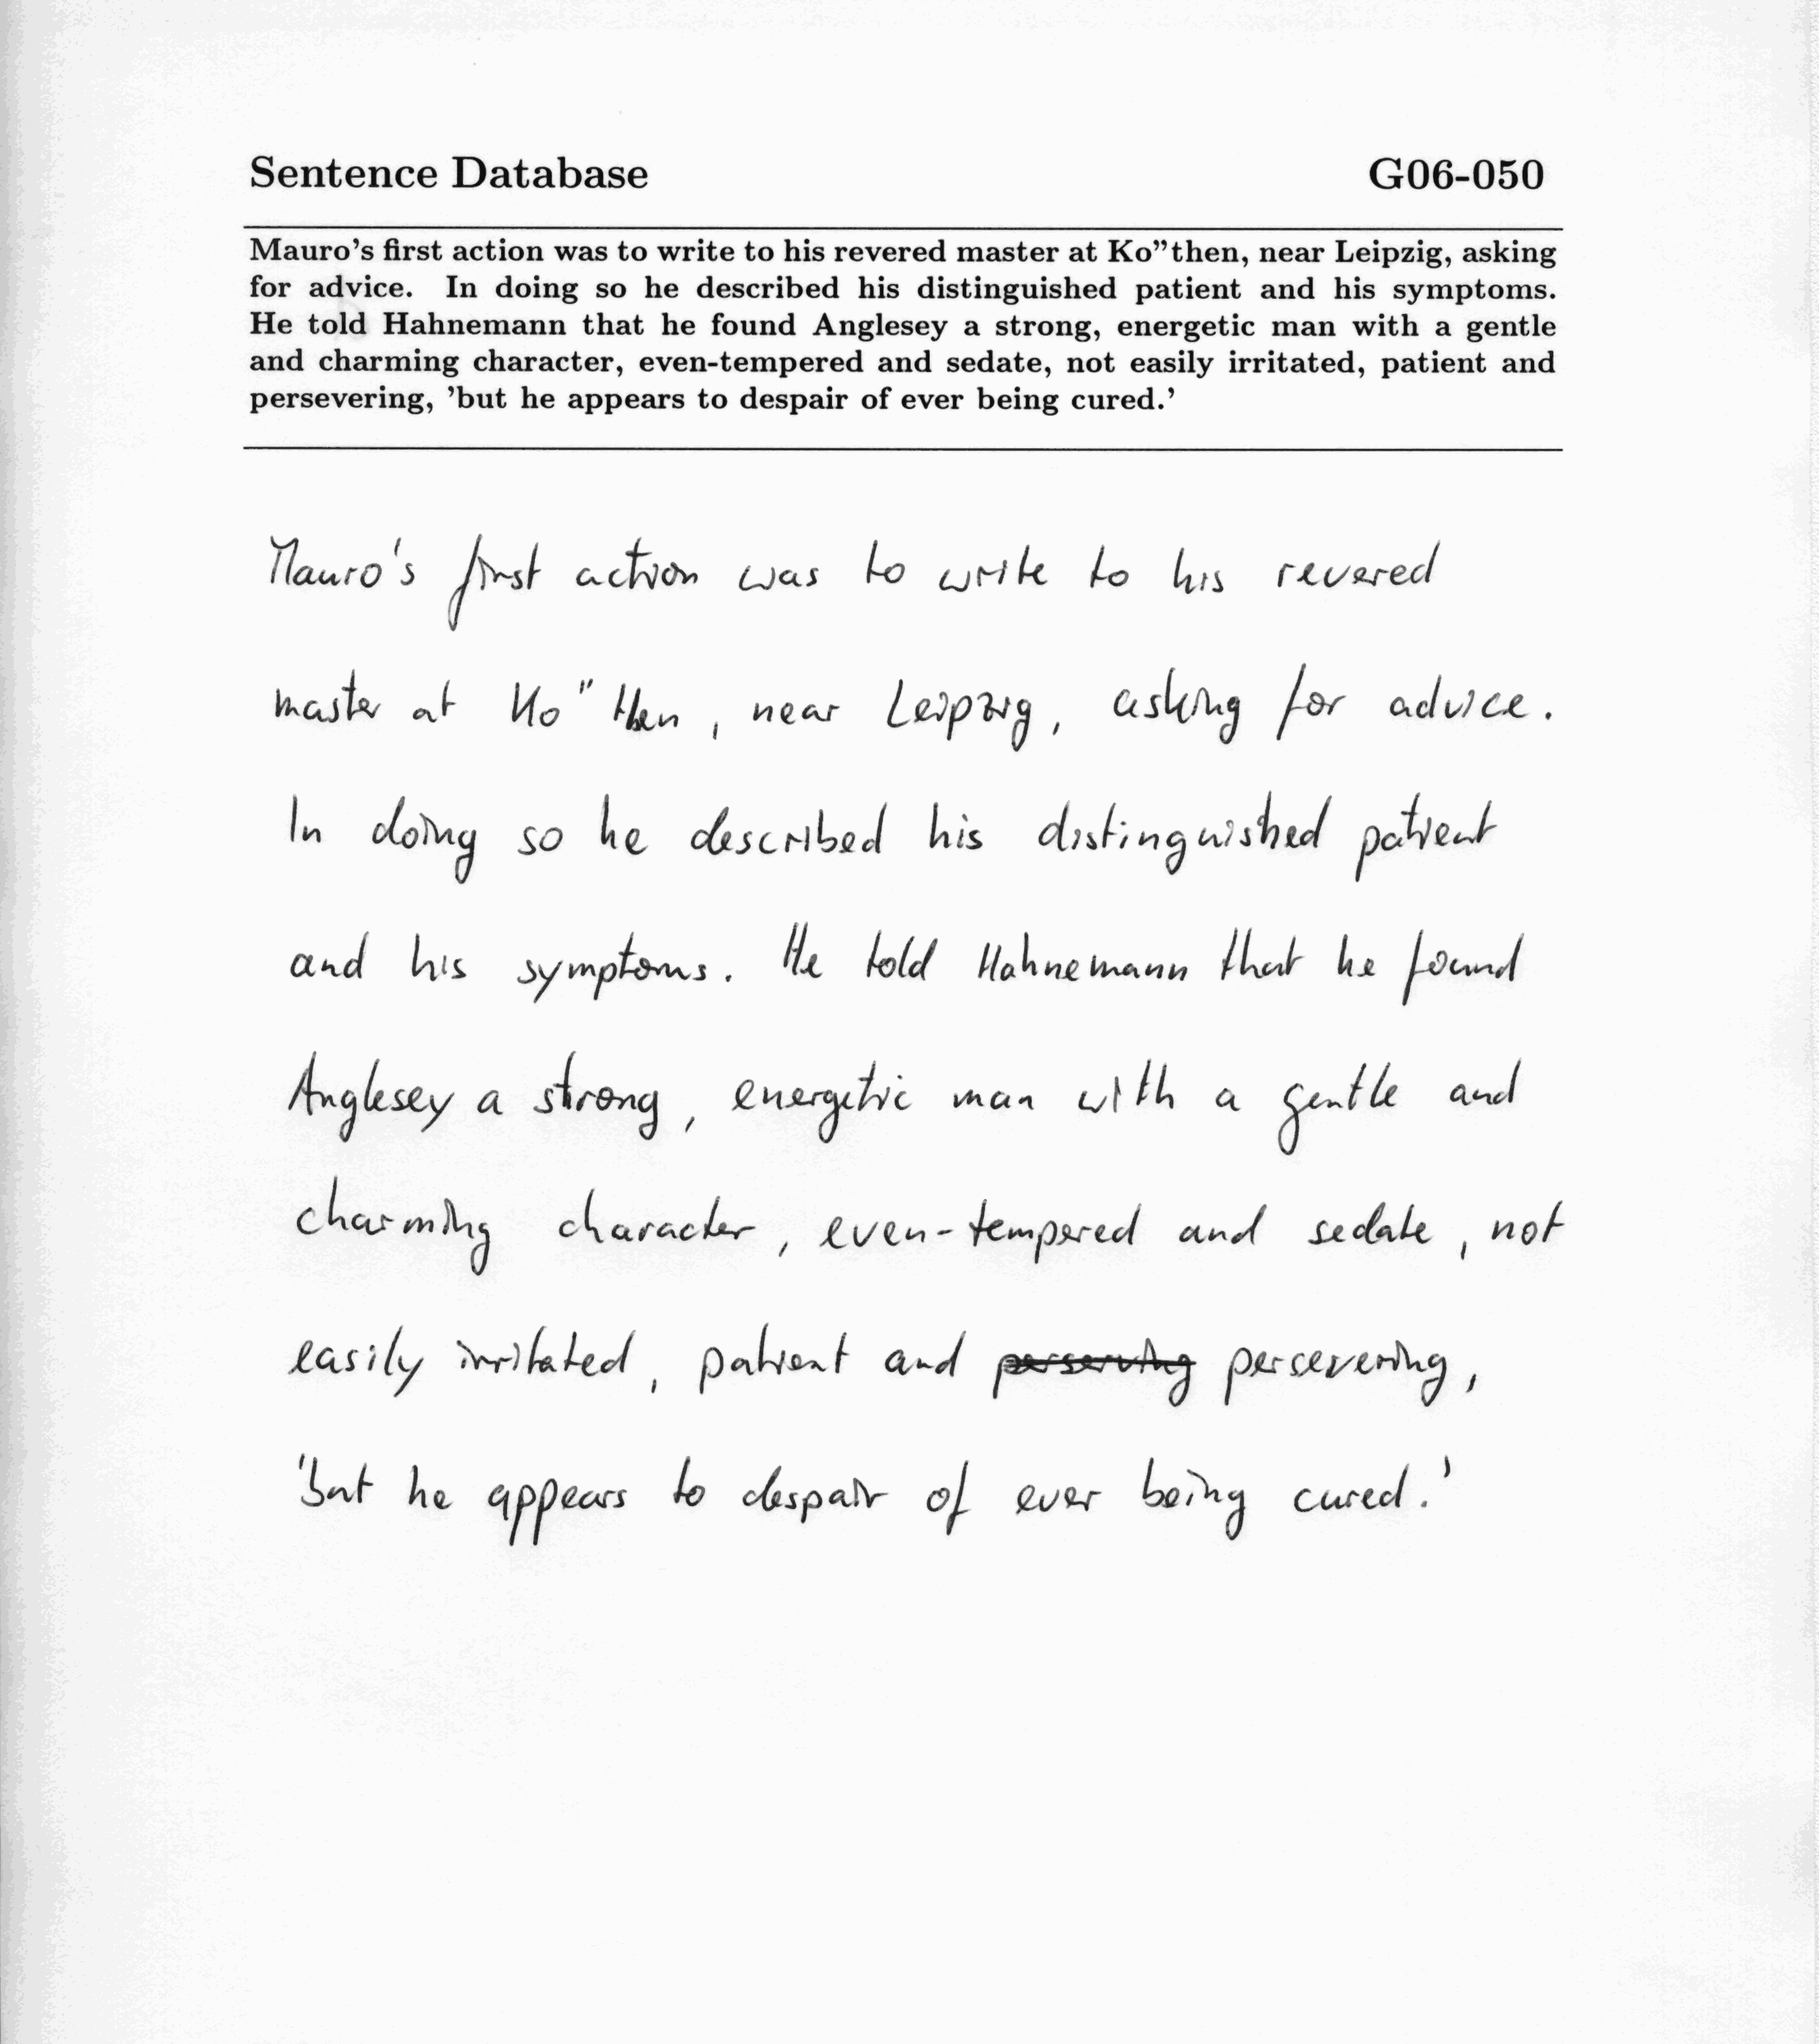 Sentence Database G06-050
Mauro's first action was to write to his revered master at Ko"then, near Leipzig, asking
for advice. In doing so he described his distinguished patient and his symptoms.
He told Hahnemann that he found Anglesey a strong, energetic man with a gentle
and charming character, even-tempered and sedate, not easily irritated, patient and
persevering, 'but he appears to despair of ever being cured.'
Mauro's first action was to write to his revered
master at Ko"then, near Leipzig, asking for advice.
In doing so he described his distinguished patient
and his symptoms. He told Hahnemann that he found
Anglesey a strong, energetic man with a gentle and
charming character, even-tempered and sedate, not
easily irritated, patient and perserving persevering,
'but he appears to despair of ever being cured.'